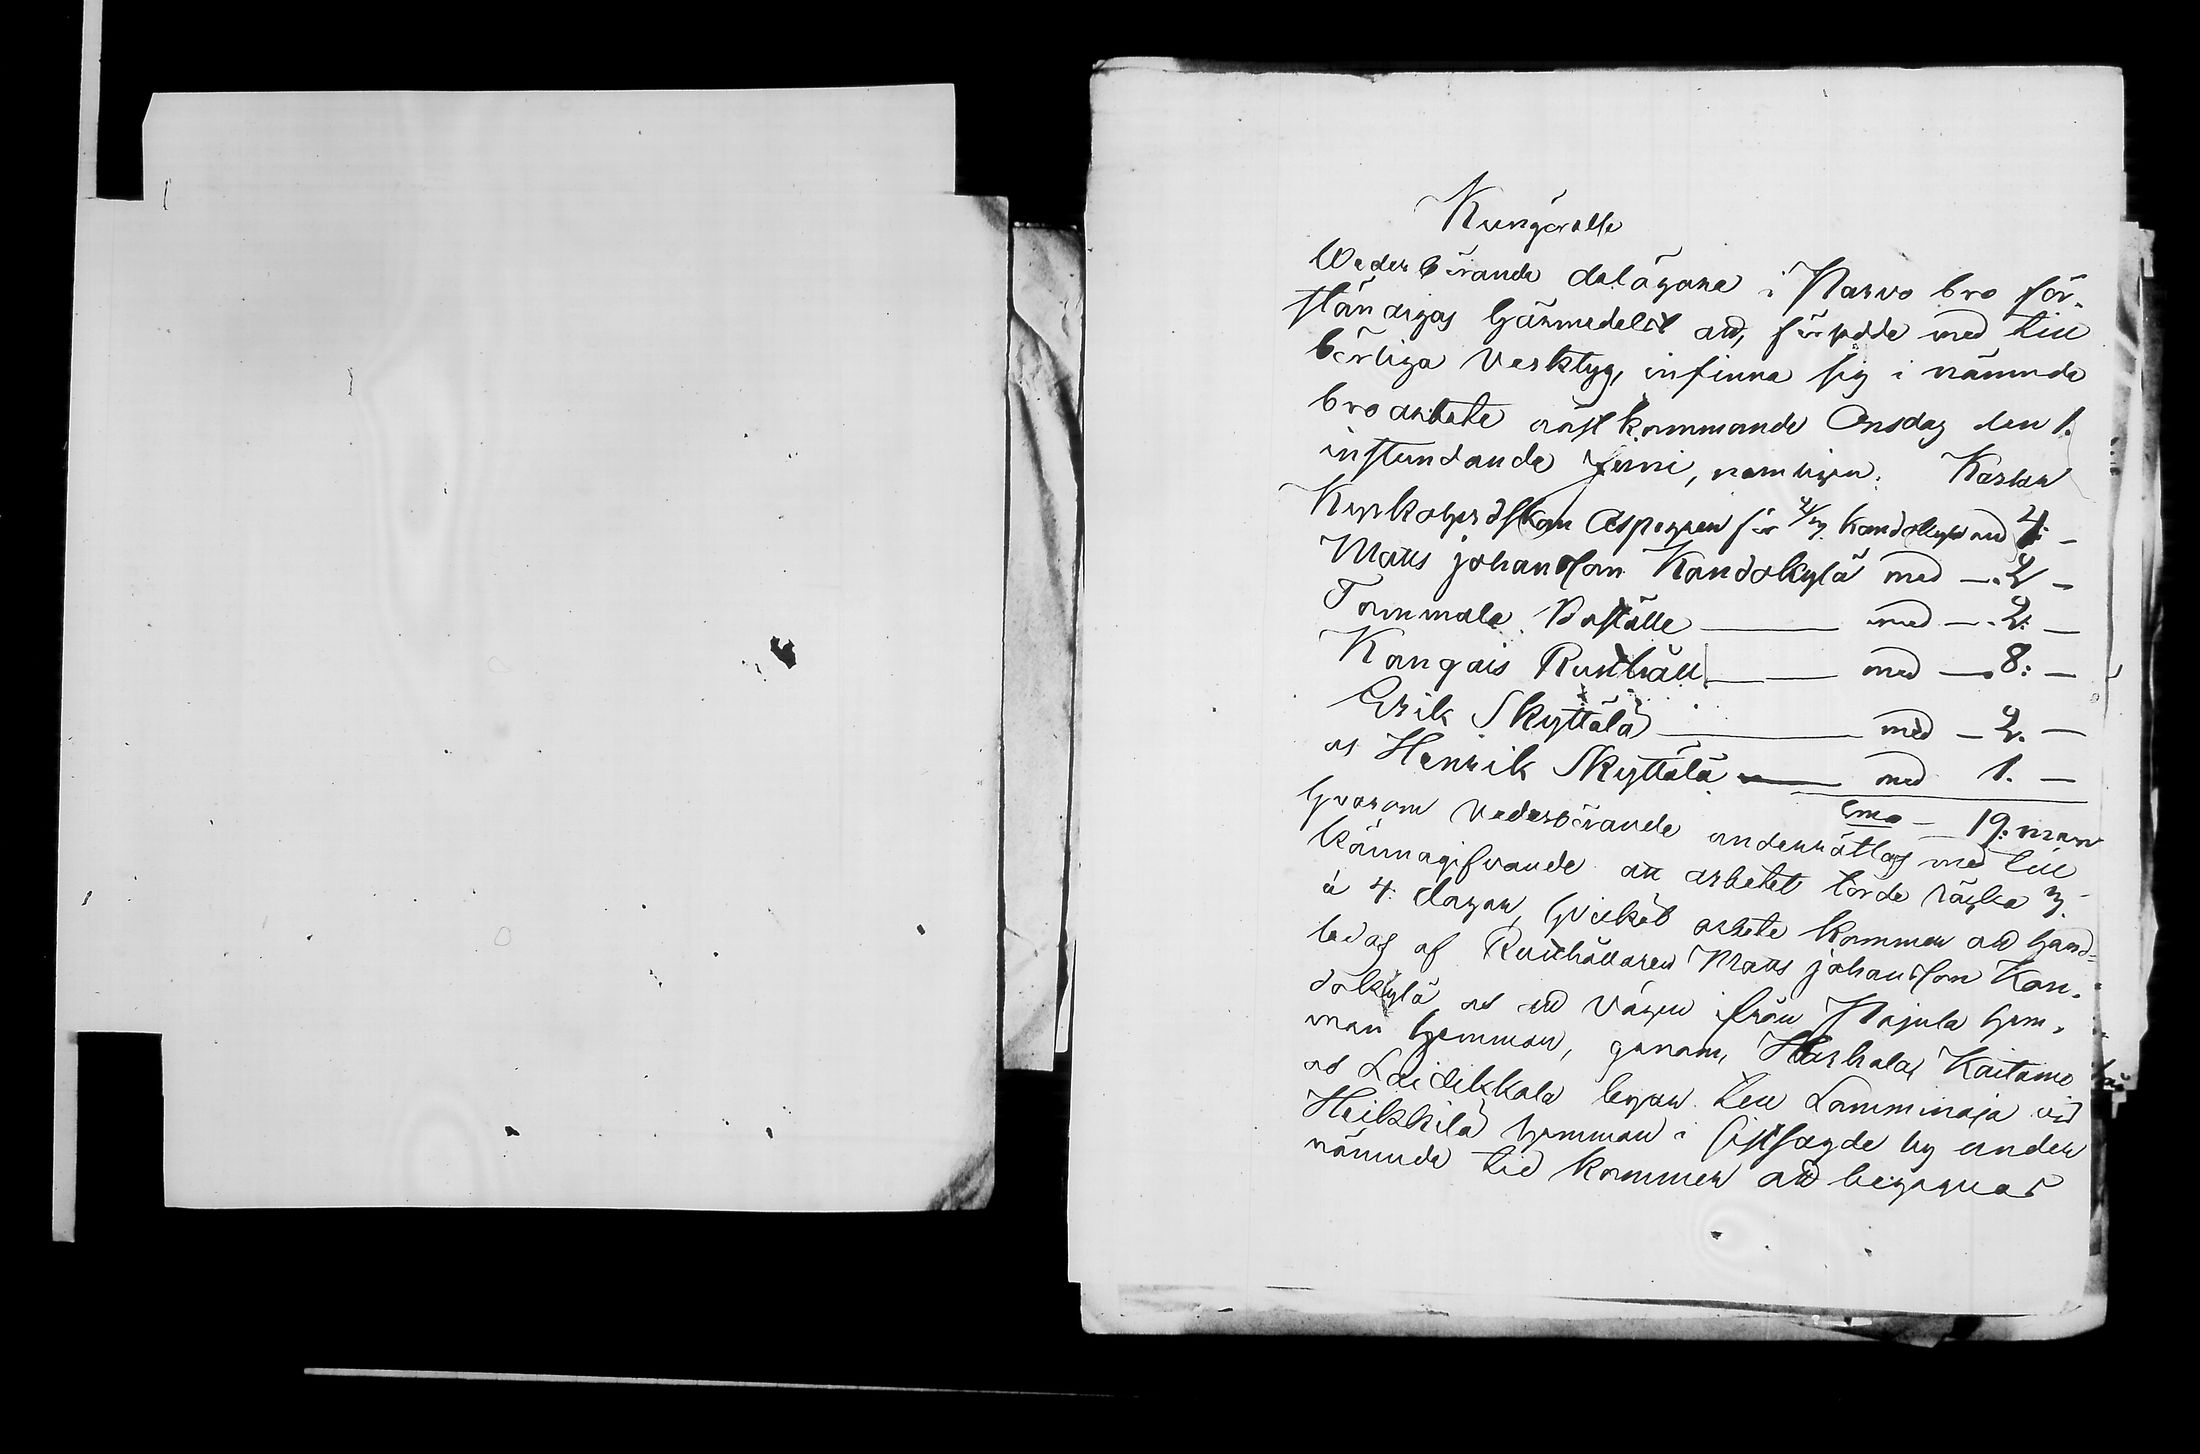 Kungörelse
Wederbörande delägare i Narvo bro för-
ständigas härmedelst att, försedde med till
börliga verktyg, infinna sig i nämnde
bro arbete nästkommande Onsdag den 1.
instundande Juni, nemligen: Karlar
Kyrkoherdskan Aspegren för 2/3 Kandolkylä med 4: –
Matts Johansson Kandolkylä med –. 2 –
Tommola Boställe —— med –. 2. –
Kangais Rusthåll —— med –. 8: –
Erik Skyttälä —— med – 2. –
oc Henrik Skyttälä —— med 1. –
Sma – 19: man
Hvarom vederbörande underrättas med till
kännagifvande att arbetet törde räcka 3.
à 4. dagar, hvilket arbete kommer att hand-
ledas af Rusthållaren Matts Johansson Kan-
dolkylä och att vägen från Najula hem-
man hemman, genom, Harhala, Kaitamo
oc Laidikkala byar till Lamminaja vid
Heikkilä hemman i sistsagde by under
nämnde tid kommer att begagnas